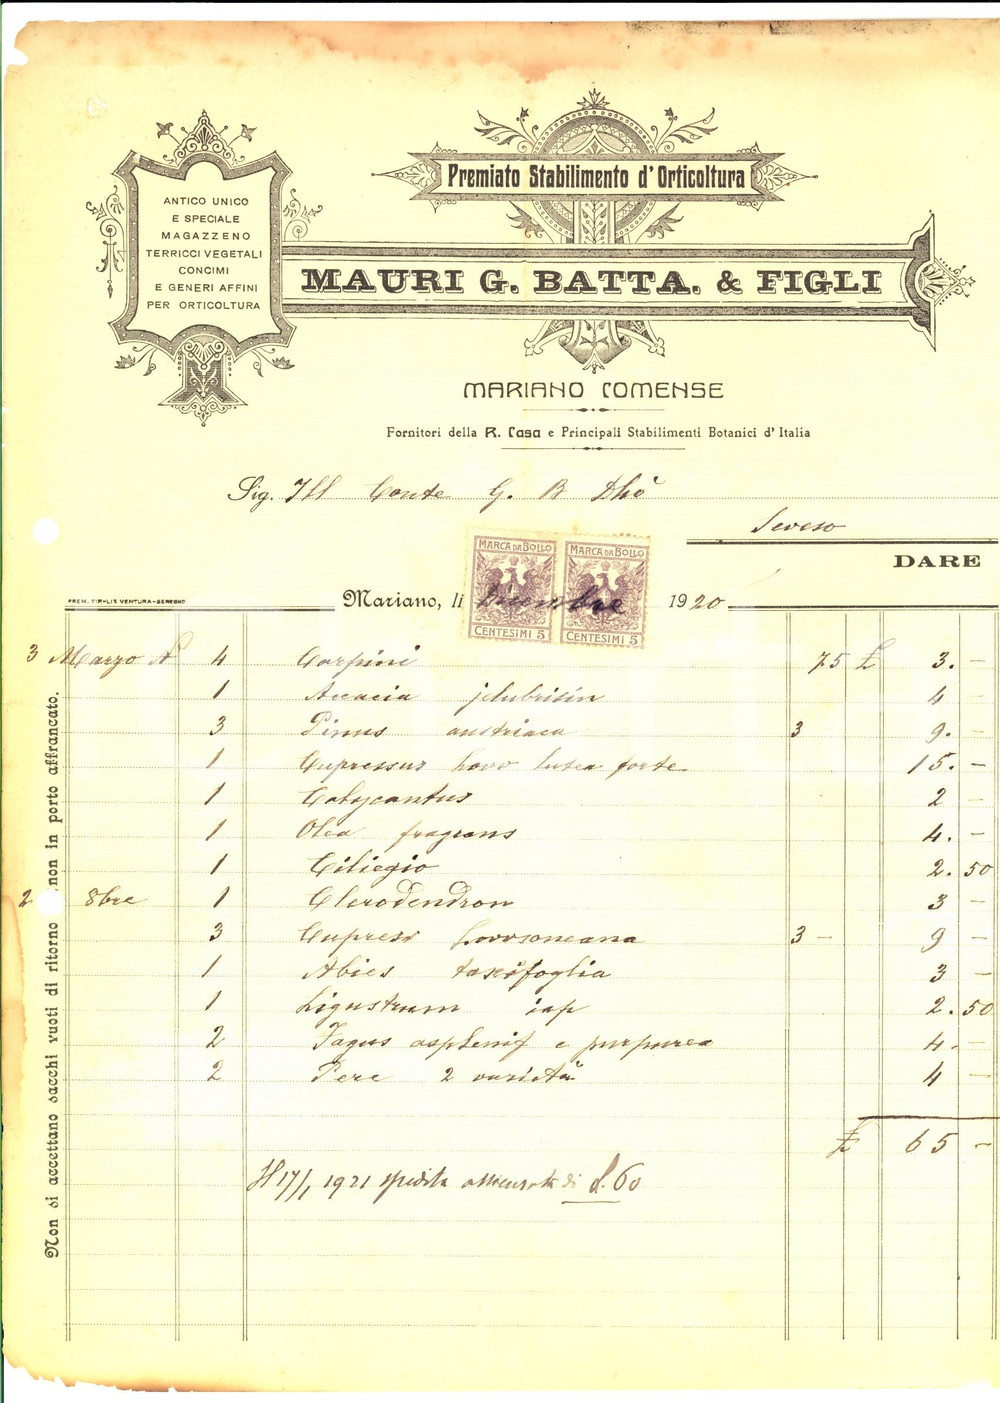 ANTICO UNICO
E SPECIALE
MAGAZZENO
TERRICCI VEGETALI
CONCIMI
E GENERI AFFINI
PER ORTICOLTURA
M
Premiato Stabilimento d'Orticoltura
MAURI G. BATTA. & FIGLI
MARIANO COMENSE
Fornitori della R. Casa e Principali Stabilimenti Botanici d'Italia
Sig. Ill Conte G. B Dhò
Seveso
DARE
MARCA DA BOLLO MARCA DA BOLLO
CENTESIMI 5 CENTESIMI 5
PREM. TIP-LIT. VENTURA-SEREGNO
Mariano, li Dicembre 1920
3 Marzo N 4 Carpini 75 £ 3. —
1 Accacia julubrisin 4
3 Pinus austriaca 3 9. —
1 Cupressus lutea forte 15. —
1 Calycantus 2 —
1 Olea fragrans 4. —
1 Ciliegio 2. 50
2 8bre 1 Clerodendron 3 —
3 Cupress Lovvsoneana 3 — 9 —
1 Abies taxifoglia 3 —
1 Ligustrum iap 2. 50
2 Fagus asplenif e purpurea 4. —
2 Pere 2 varietà 4 —
£ 65 —
Il 17/1 1921 spedita di £. 60
Non si accettano sacchi vuoti di ritorno non in porto affrancato.